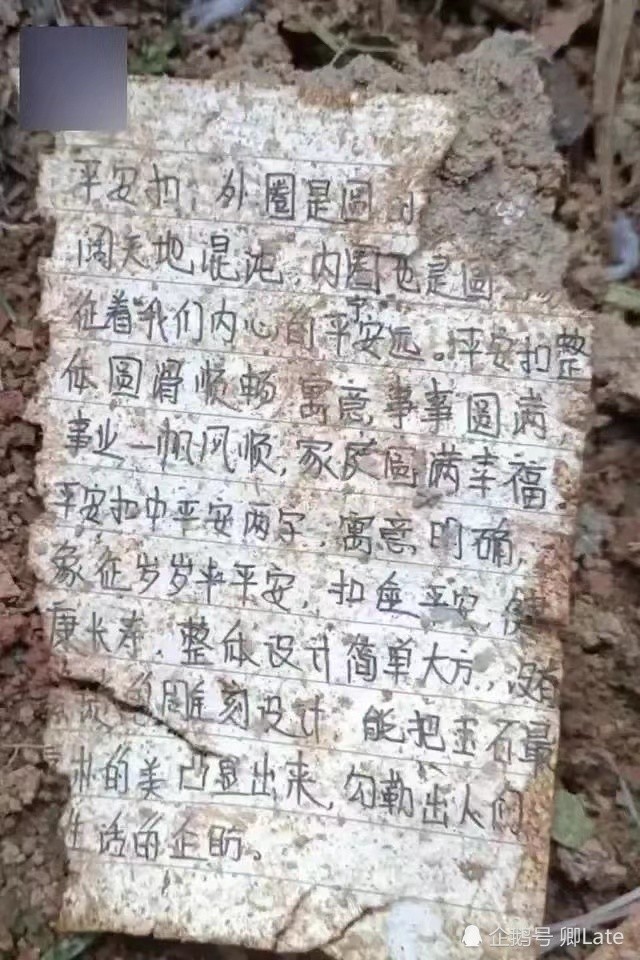 平安扣，外圈是圆的
阔天地混沌，内圈也是圆
征着我们内心的平安宁远。平安扣整
体圆滑顺畅 寓意事事圆满，
事业一帆风顺，家庭圆满幸福.
平安扣中平安两字，寓意明确，
象征岁岁平平安，扣住平安，健
康长寿，整体设计简单大方，没有
雕刻设计 能把玉石最
的美凸显出来，勾勒出人们
生活的企盼。
企鹅号 卿Late